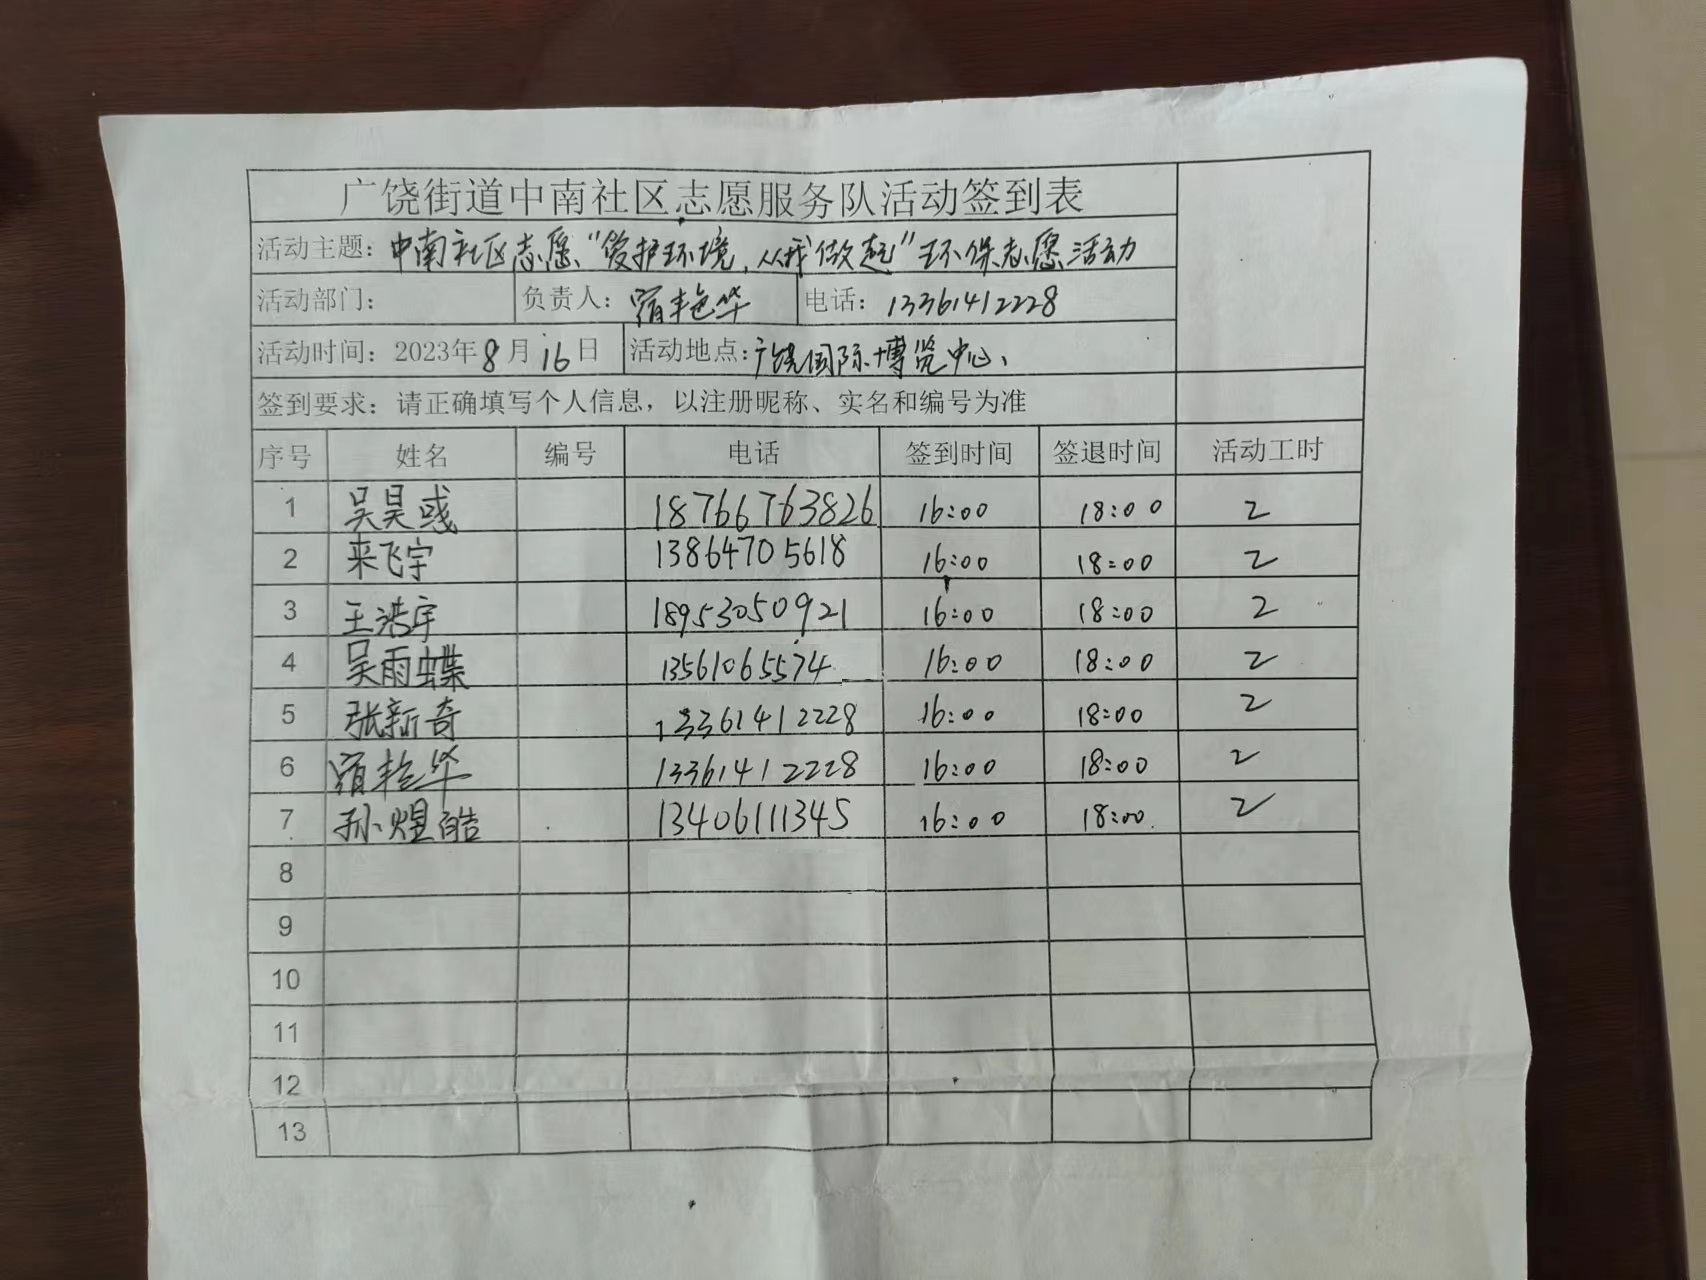 广饶街道中南社区志愿服务队活动签到表
活动主题：中南社区志愿“爱护环境，从我做起”环保志愿活动
活动部门： 负责人：宿艳华 电话：13361412228
活动时间：2023年8月16日 活动地点：广饶国际博览中心、
签到要求：请正确填写个人信息，以注册昵称、实名和编号为准
序号 姓名 编号 电话 签到时间 签退时间 活动工时
1 吴昊彧 18766763826 16:00 18:00 2
2 来飞宇 13864705618 16:00 18:00 2
3 王浩宇 18953050921 16:00 18:00 2
4 吴雨蝶 13561065574 16:00 18:00 2
5 张新奇 13361412228 16:00 18:00 2
6 宿艳华 13361412228 16:00 18:00 2
7 孙煜皓 13406111345 16:00 18:00 2
8
9
10
11
12
13